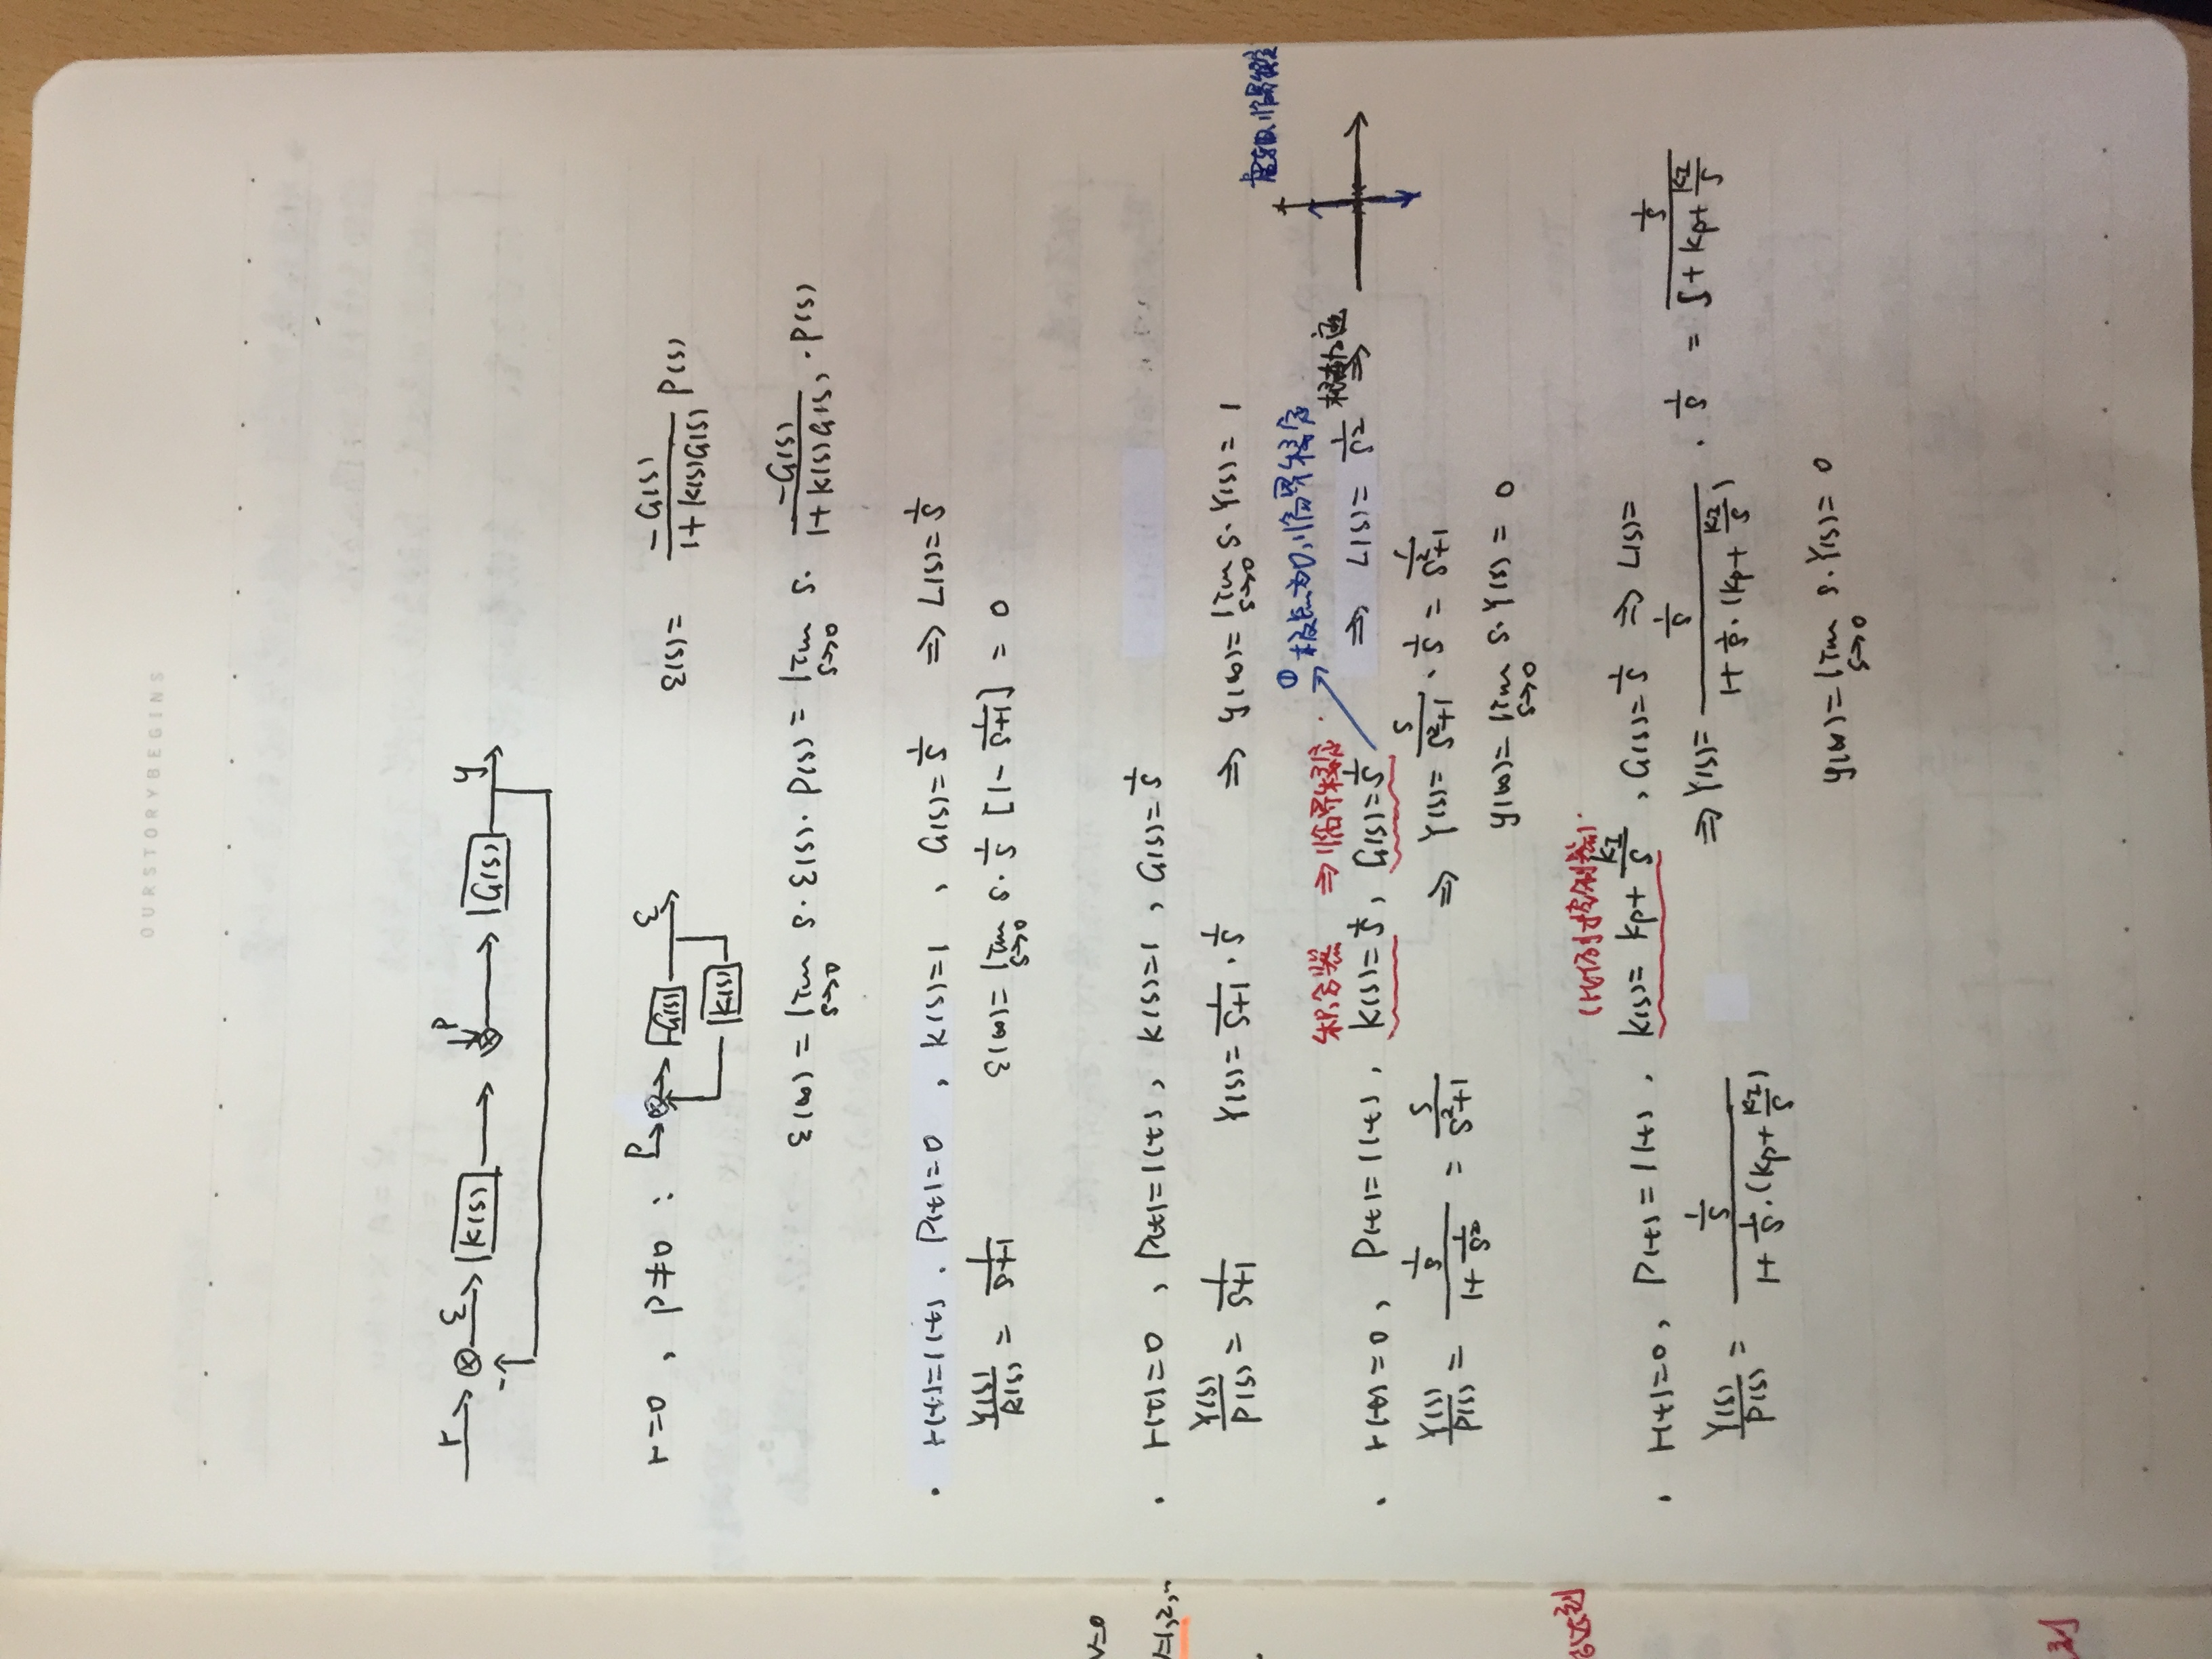 OURSTORYBEGINS
r ε K(s) P G(s) y
-
r=0 , P≠0 : P -G(s) ε K(s) ε(s)= -G(s)/(1+K(s)G(s)) P(s)
ε(∞) = lim s→0 s·ε(s)·P(s) = lim s→0 s· -G(s)/(1+K(s)G(s)) ·P(s)
· r(t)=1(t) . P(t)=0 , K(s)=1 , G(s)=1/s ⇒ L(s)=1/s
Y(s)/R(s) = 1/(s+1) ε(∞)= lim s→0 s·1/s [1- 1/(s+1)] = 0
V=0
· r(t)=0 , P(t)=1(t) , K(s)=1 , G(s)=1/s
=1,2,
Y(s)/P(s) = 1/(s+1) Y(s)= 1/(s+1) · 1/s ⇒ y(∞)= lim s→0 s·Y(s)= 1
虚轴,临界稳定
积分器 ⇒临界稳定. ① 极点为0,临界稳定
· r(t)=0 , P(t)=1(t) , K(s)=1/s , G(s)=1/s ⇒ L(s)= 1/s² ⇒
Y(s)/P(s) = (1/s)/(1+1/s²) = s/(s²+1) ⇒ Y(s)= s/(s²+1) · 1/s = 1/(s²+1)
y(∞)= lim s→0 s·Y(s) = 0
达到
· r(t)=0, P(t)=1(t) . K(s)= kp+ kI/s , G(s)=1/s ⇒ L(s)=
Y(s)/P(s) = (1/s)/(1+1/s·(kp+kI/s)) ⇒ Y(s)= (1/s)/(1+1/s·(kp+kI/s)) · 1/s = (1/s)/(s+kp+kI/s)
y(∞)= lim s→0 s·Y(s)= 0
到